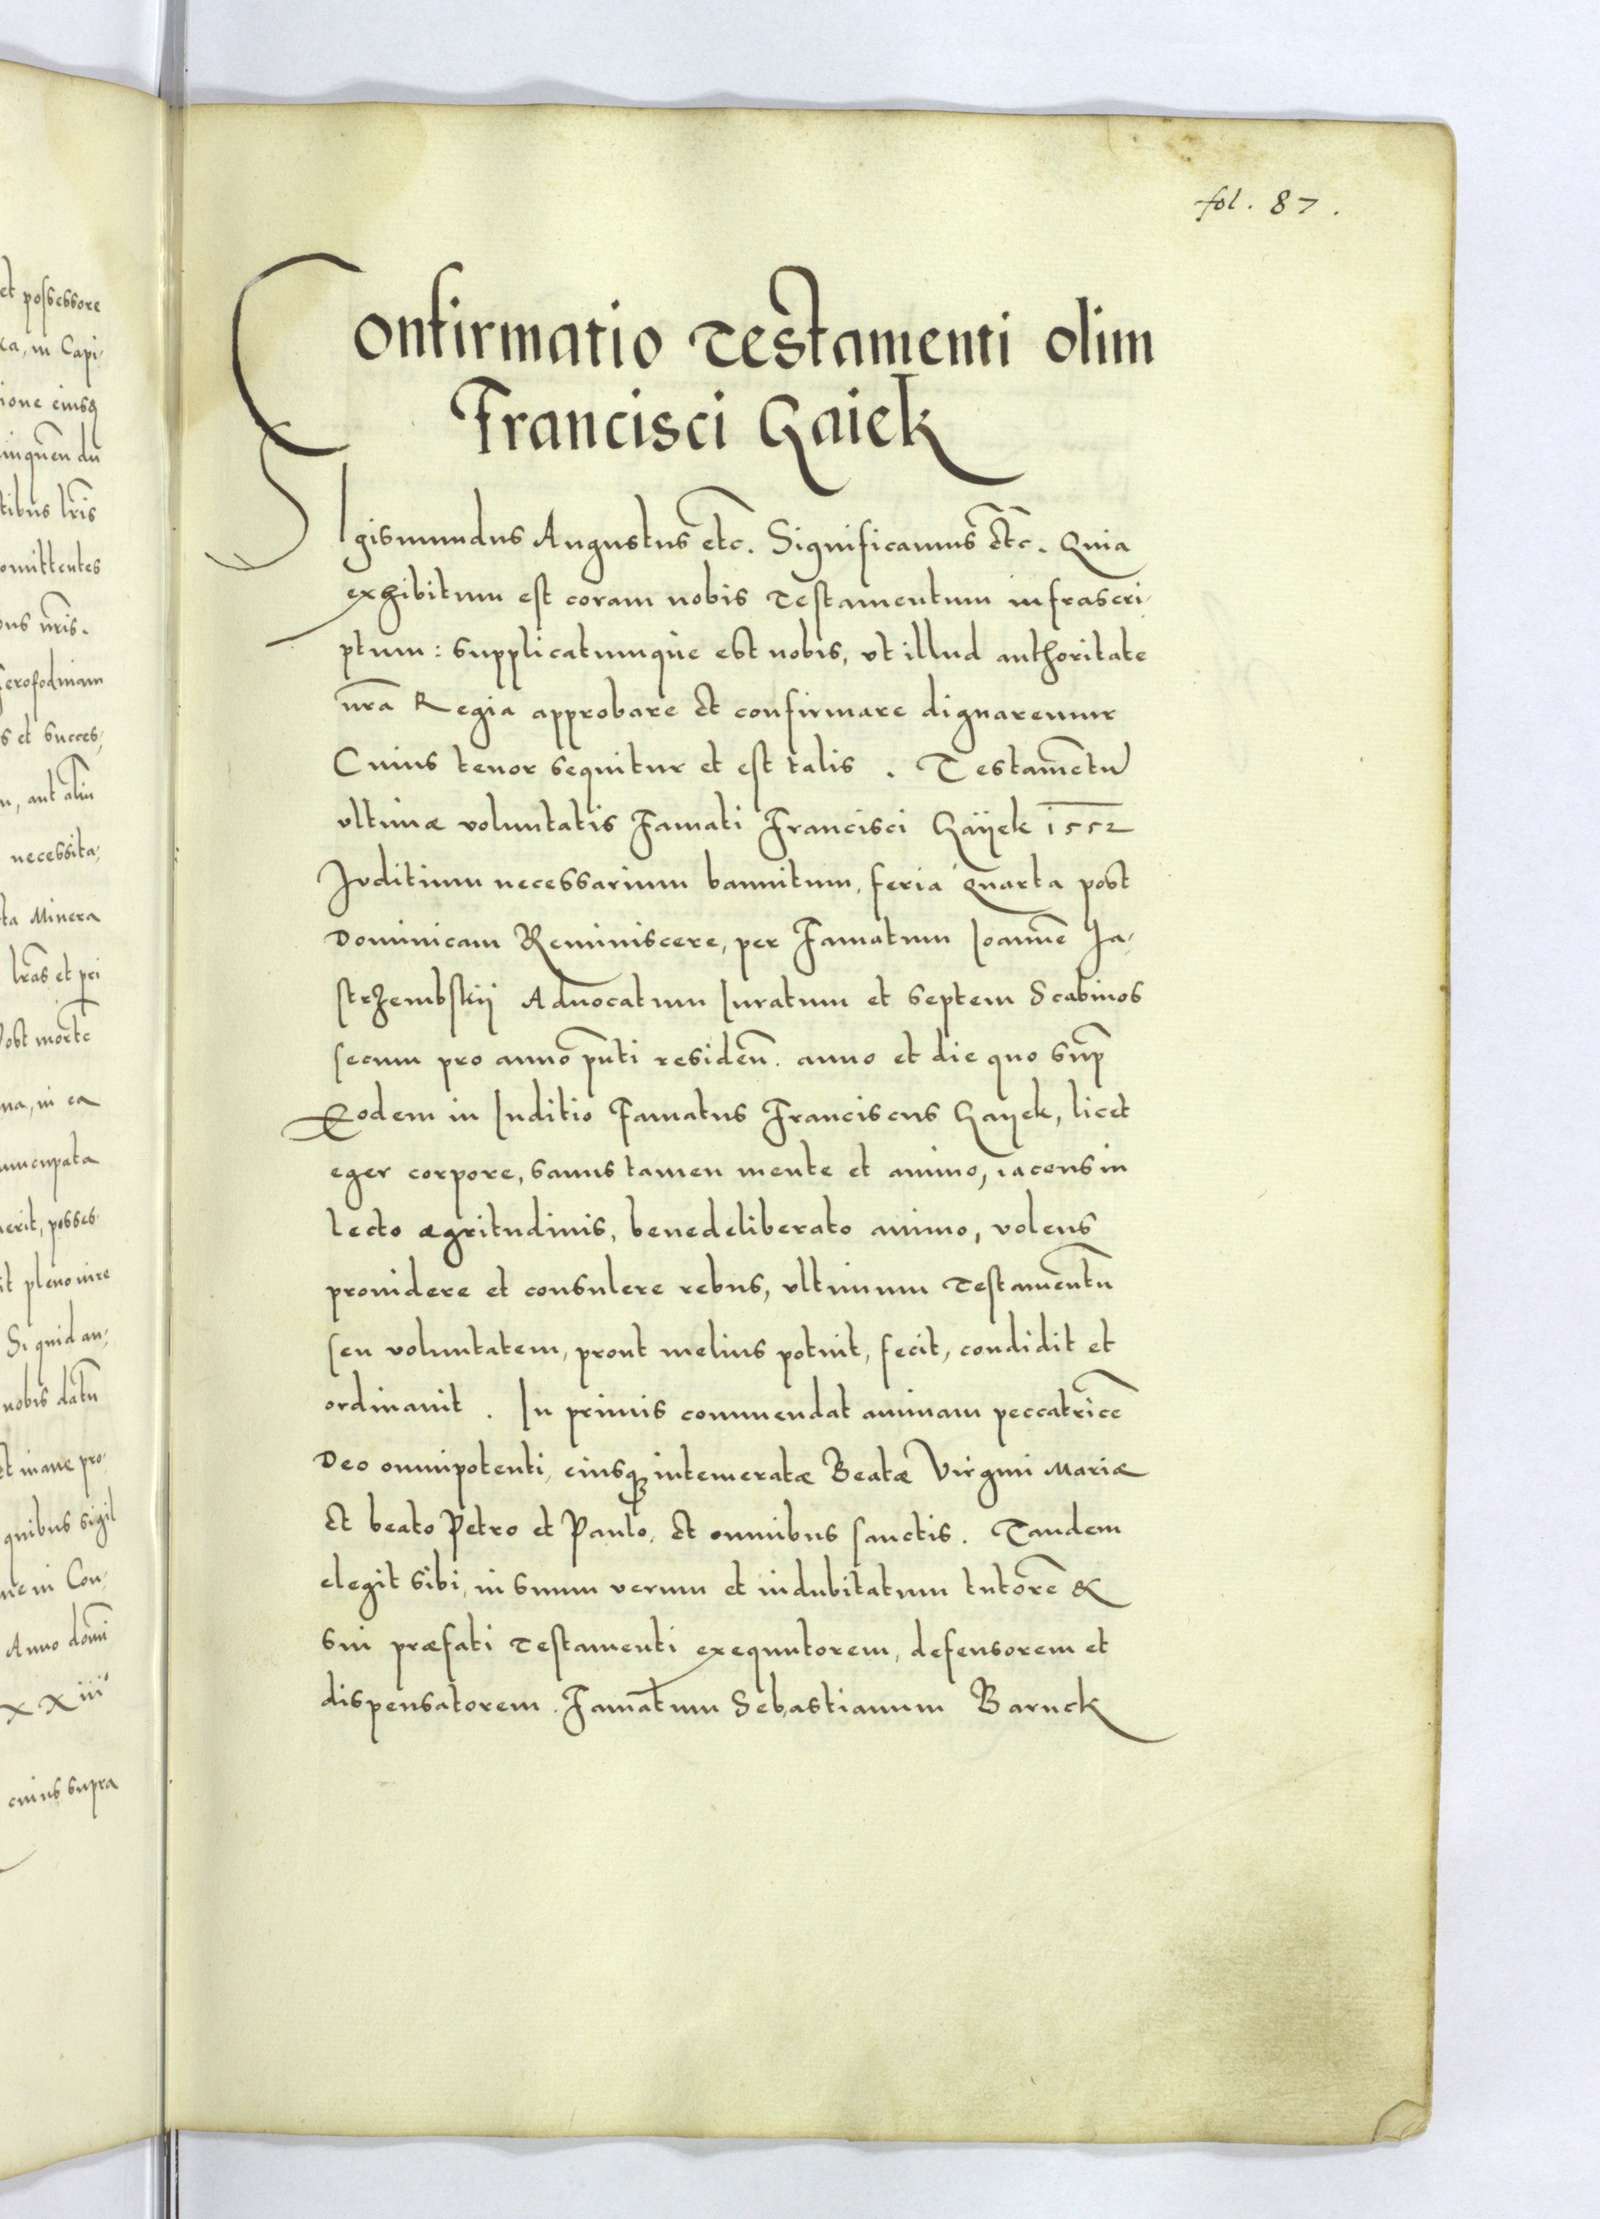 et possessore
ca, in Capi-
ione eiusq
inquen du
tibus lris
omittentes
ous nris.
ferofodinam
s et succes,
u, aut aliu
necessita,
ta Minera
lras et pri
Post morte
ma, in ea
nuncupata
erit, posses-
it pleno iure
Si quid an,
nobis datu
et inane pro-
quibus sigil
ne in Con,
Anno domi
xx iii
cuius supra
fol. 87.
Confirmatio Testamenti olim
Francisci Gaiek
Sigismundus Augustus etc. Significamus etc. Quia
exhibitum est coram nobis Testamentum infrascri-
ptum: supplicatumque est nobis, vt illud authoritate
nra Regia approbare et confirmare dignaremur
Cuius tenor sequitur et est talis. Testametu
vltimæ voluntatis Famati Francisci Gaÿek 1552
Juditium necessarium bannitum, feria Quarta post
Dominicam Reminiscere, per Famatum Ioanne Ja-
strzembskij Aduocatum Iuratum et septem Scabinos
secum pro anno pnti residen. anno et die quo sup
Eodem in Iuditio Famatus Franciscus Gayek, licet
eger corpore, sanus tamen mente et animo, iacens in
lecto ægritudinis, benedeliberato animo, volens
prouidere et consulere rebus, vltimum Testamentu
seu voluntatem, prout melius potuit, fecit, condidit et
ordinauit. In primis commendat animam peccatrice
Deo omnipotenti, eiusq intemeratæ Beatæ Virgini Mariæ
et beato Petro et Paulo, et omnibus sanctis. Tandem
elegit sibi, in suum verum et indubitatum tutore &
sui præfati Testamenti exequutorem, defensorem et
dispensatorem. Famatum Sebastianum Baruck